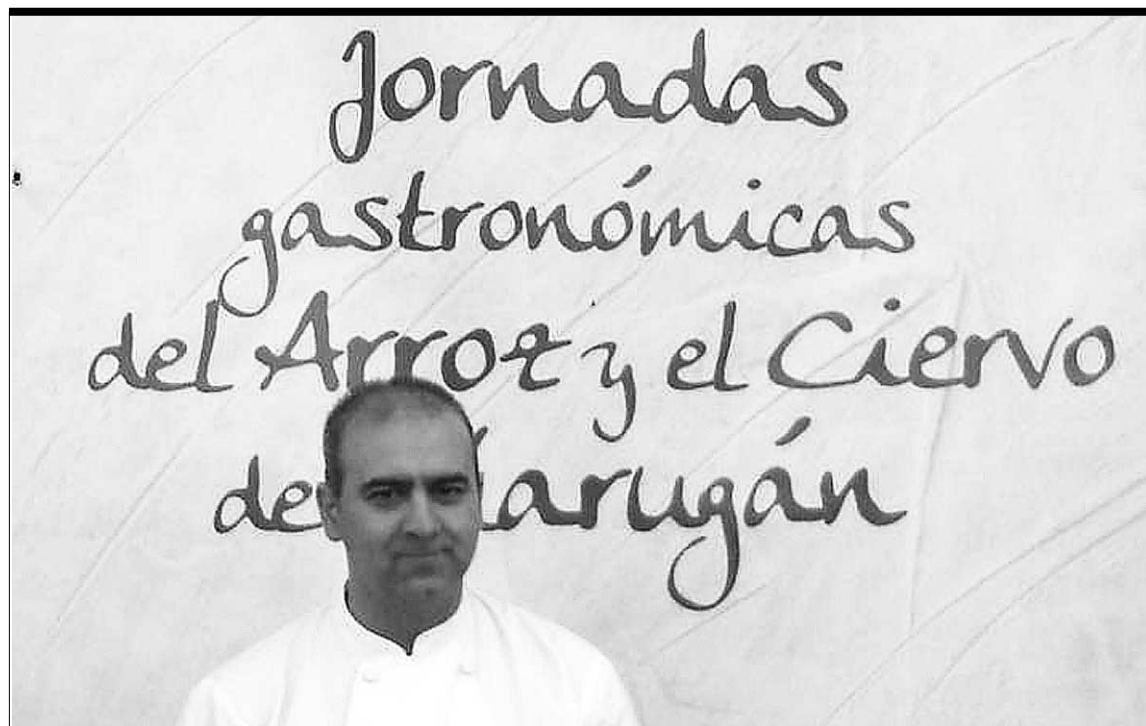 Jornadas
gastronómicas
del Arroz y el Ciervo
de Marugán